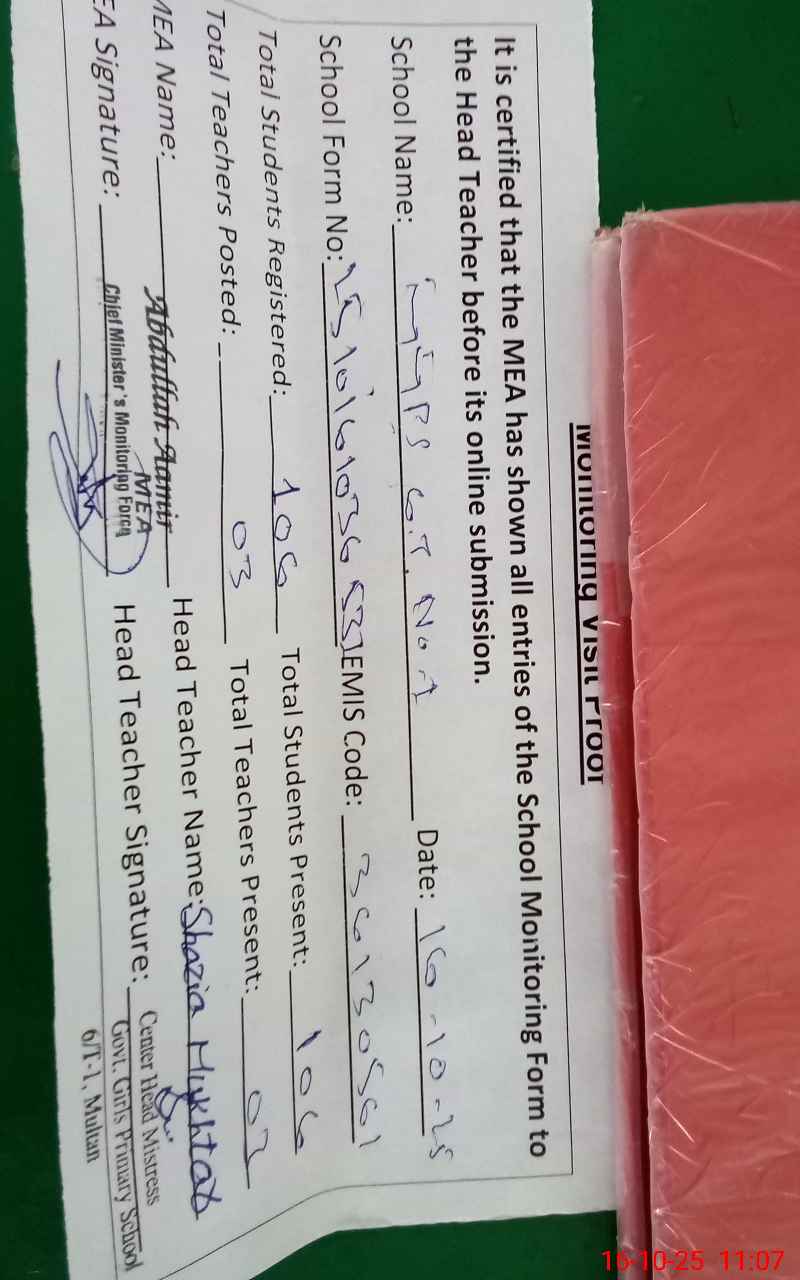 Monitoring Visit Proof
It is certified that the MEA has shown all entries of the School Monitoring Form to
the Head Teacher before its online submission.
School Name: GGPS 6.T. No 1 Date: 16-10-25
School Form No: EMIS Code: 36130561
Total Students Registered: 106 Total Students Present: 106
Total Teachers Posted: 03 Total Teachers Present: 02
MEA Name: Abdullah Aamir Head Teacher Name: Shazia Mukhtar
MEA
EA Signature: Chief Minister's Monitoring Force Head Teacher Signature: Center Head Mistress
Govt. Girls Primary School
6/T-1, Multan
16-10-25 11:07